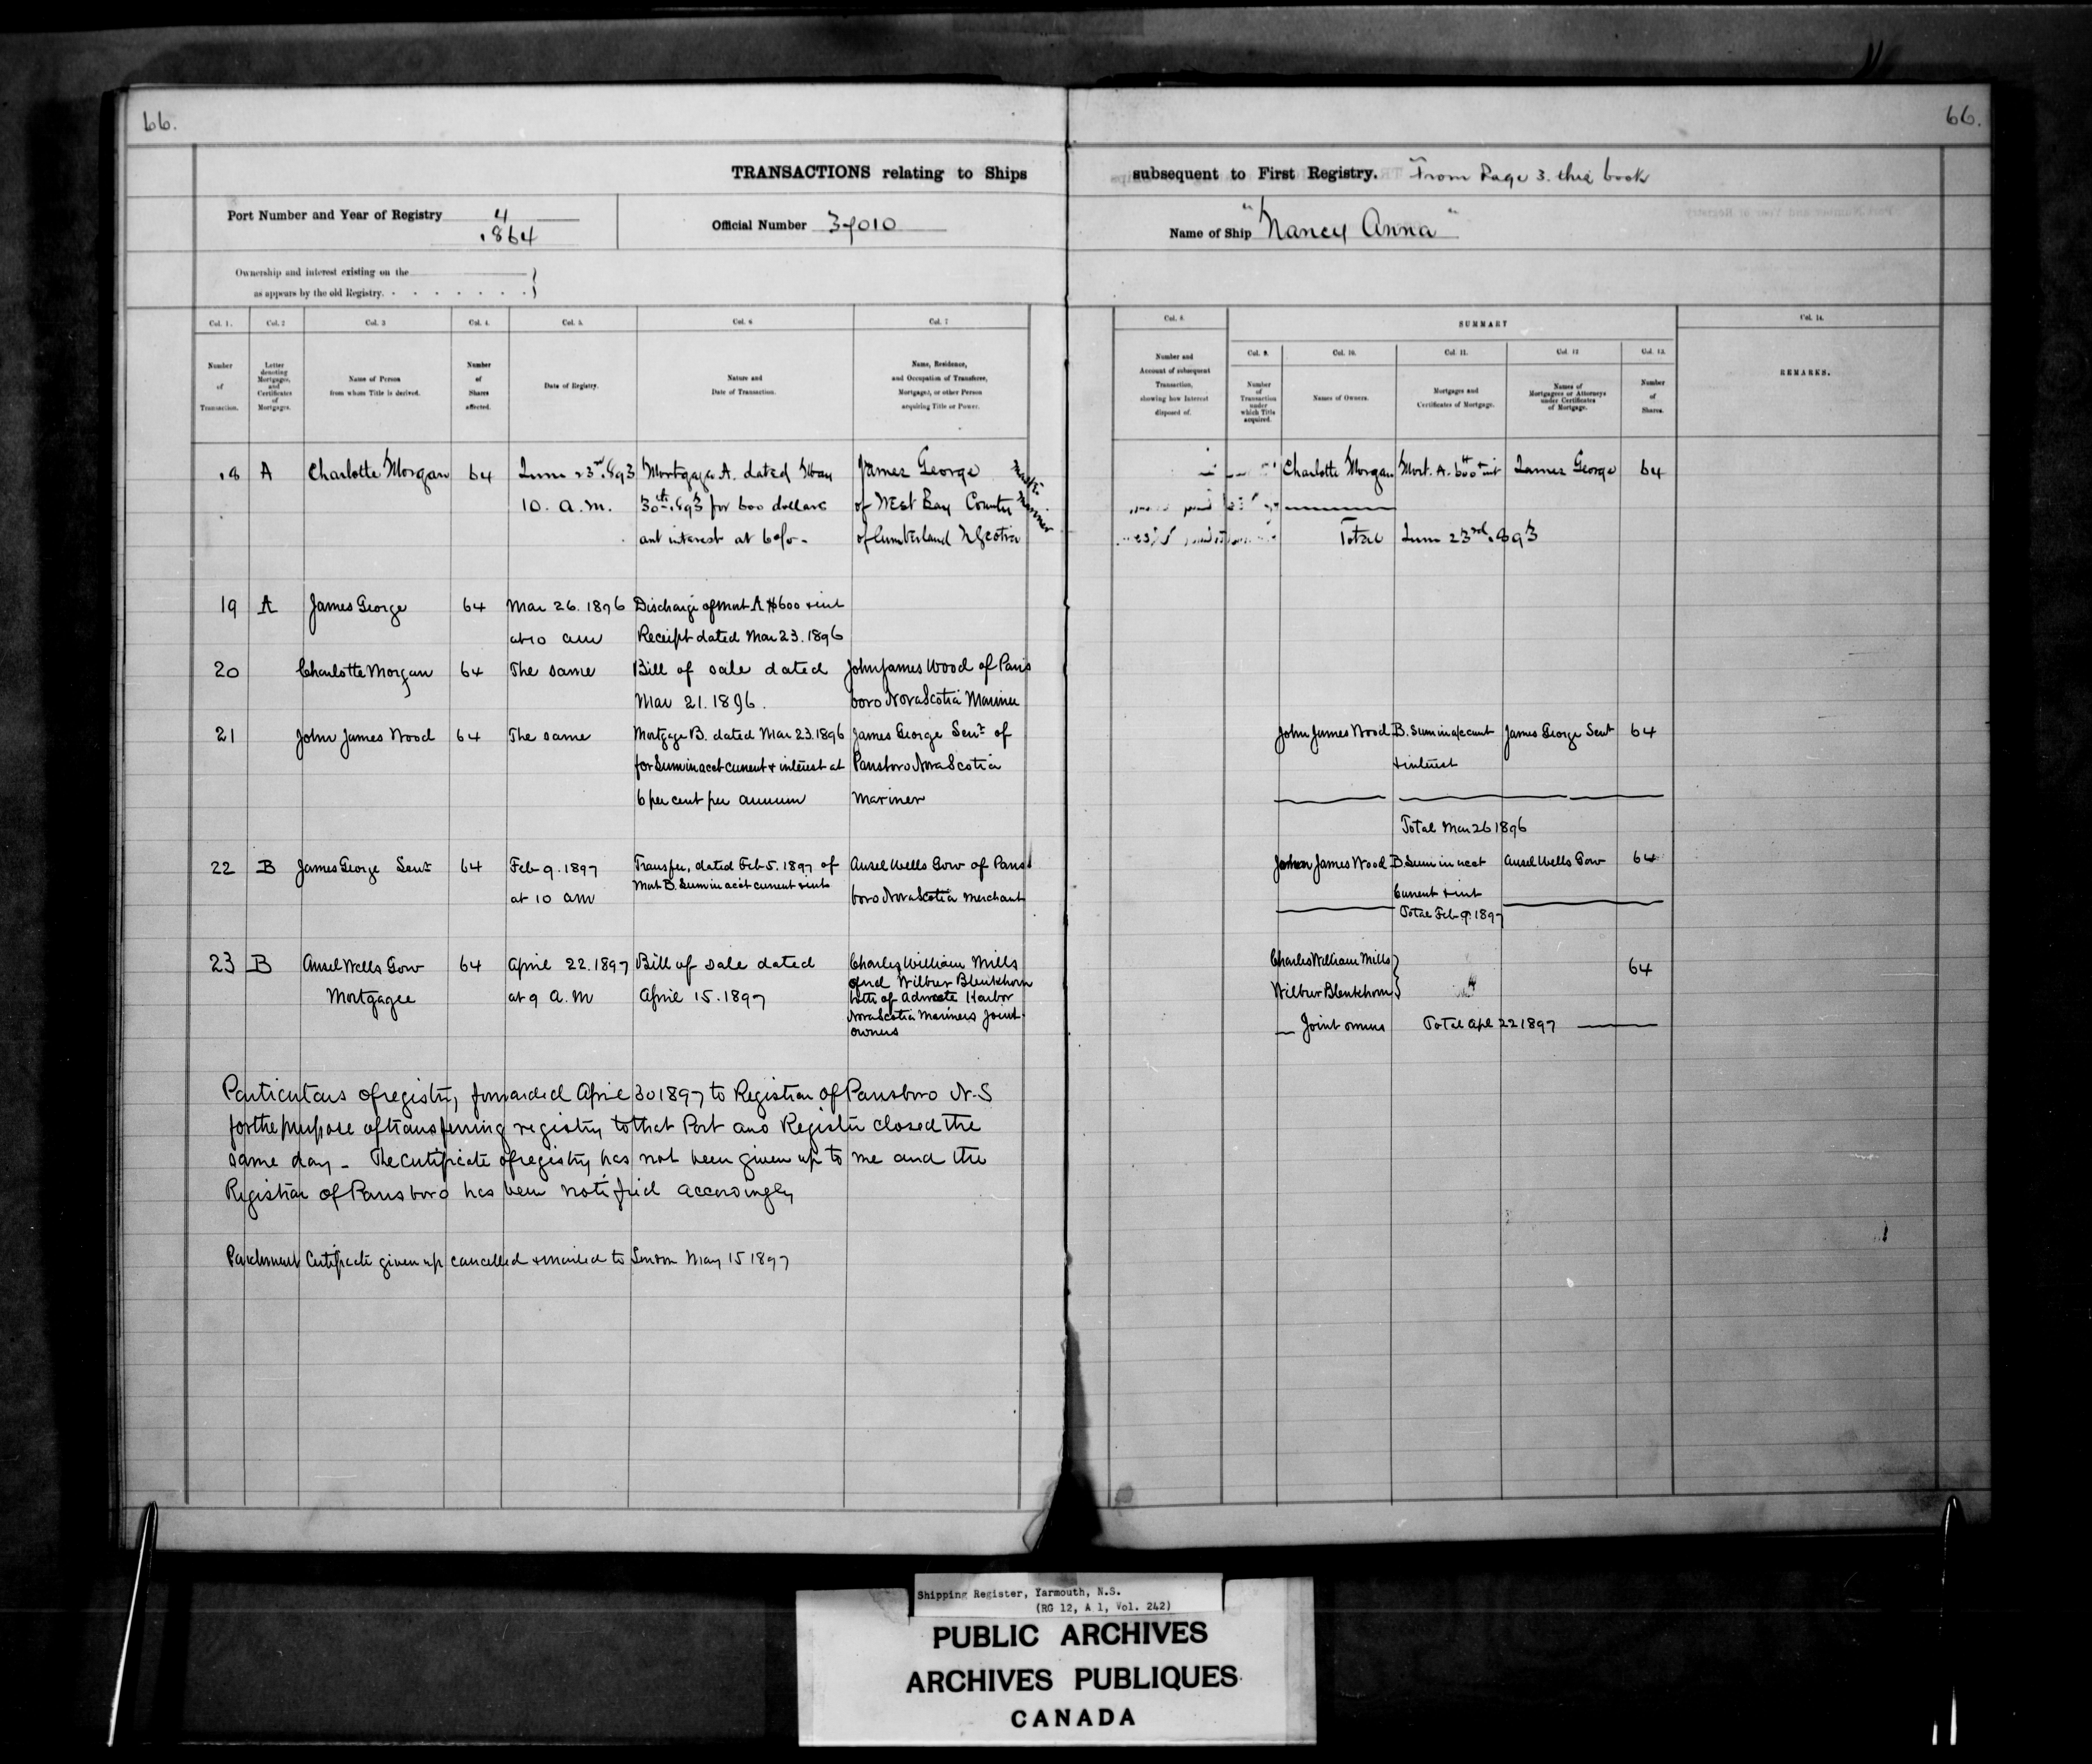 66.
66.
TRANSACTIONS relating to Ships
subsequent to First Registry. From Page 3. this book
Port Number and Year of Registry 4
1864
Official Number 37010
Name of Ship "Nancy Anna"
Ownership and interest existing on the
as appears by the old Registry.
Col. 1.
Number
of
Transaction.
Col. 2
Letter
denoting
Mortgages,
and
Certificates
of
Mortgages.
Col. 3
Name of Person
from whom Title is derived.
Col. 4.
Number
of
Shares
affected.
Col. 5.
Date of Registry.
Col. 6
Nature and
Date of Transaction.
Col. 7
Name, Residence,
and Occupation of Transferee,
Mortgagee, or other Person
acquiring Title or Power.
Col. 8.
Number and
Account of subsequent
Transaction,
showing how Interest
disposed of.
SUMMARY
Col. 9.
Number
of
Transaction
under
which Title
acquired.
Col. 10.
Names of Owners.
Col. 11.
Mortgages and
Certificates of Mortgage.
Col. 12
Names of
Mortgagees or Attorneys
under Certificates
of Mortgage.
Col. 13.
Number
of
Shares.
Col. 14.
REMARKS.
18 A Charlotte Morgan 64 June 23rd 1893 Mortgage A. dated May James George
10. a.m. 30th 1893 for 600 dollars of West Bay County
and interest at 6 o/o - of Cumberland N Scotia
Master Mariner
Charlotte Morgan Mort. A. 600 + int James George 64
Total June 23rd 1893
19 A James George 64 Mar 26. 1896 Discharge of Mort A $600 + int
at 10 am Receipt dated Mar 23. 1896
20 Charlotte Morgan 64 The same Bill of sale dated John James Wood of Parrs
Mar 21. 1896. boro Nova Scotia Mariner
21 John James Wood 64 The same Mortgage B. dated Mar 23. 1896 James George Senr of
for Sum in acct current + interest at Parrsboro Nova Scotia
6 per cent per annum Mariner
John James Wood B. Sum in a/c curnt James George Senr 64
+ interest
Total Mar 26 1896
22 B James George Senr 64 Feb 9. 1897 Transfer, dated Feb 5. 1897 of Ansel Wells Gow of Parrs
Mort B. Sum in acct current + int
at 10 am boro Nova Scotia Merchant
John James Wood B. Sum in acct Ansel Wells Gow 64
Current + int
Total Feb 9. 1897
23 B Ansel Wells Gow 64 April 22. 1897 Bill of Sale dated Charles William Mills
Mortgagee at 9 A.M April 15. 1897 and Wilbur Blenkhorn
both of Advocate Harbor
Nova Scotia Mariners Joint
owners
Charles William Mills 64
Wilbur Blenkhorn
Joint owners Total Apl 22 1897
Particulars of registry, forwarded April 30 1897 to Registrar of Parrsboro N.S
for the purpose of transferring registry to that Port and Register closed the
same day - The certificate of registry has not been given up to me and the
Registrar of Parrsboro has been notified accordingly
Parchment Certificate given up cancelled + mailed to London May 15 1897
Shipping Register, Yarmouth, N.S.
(RG 12, A 1, Vol. 242)
PUBLIC ARCHIVES
ARCHIVES PUBLIQUES
CANADA